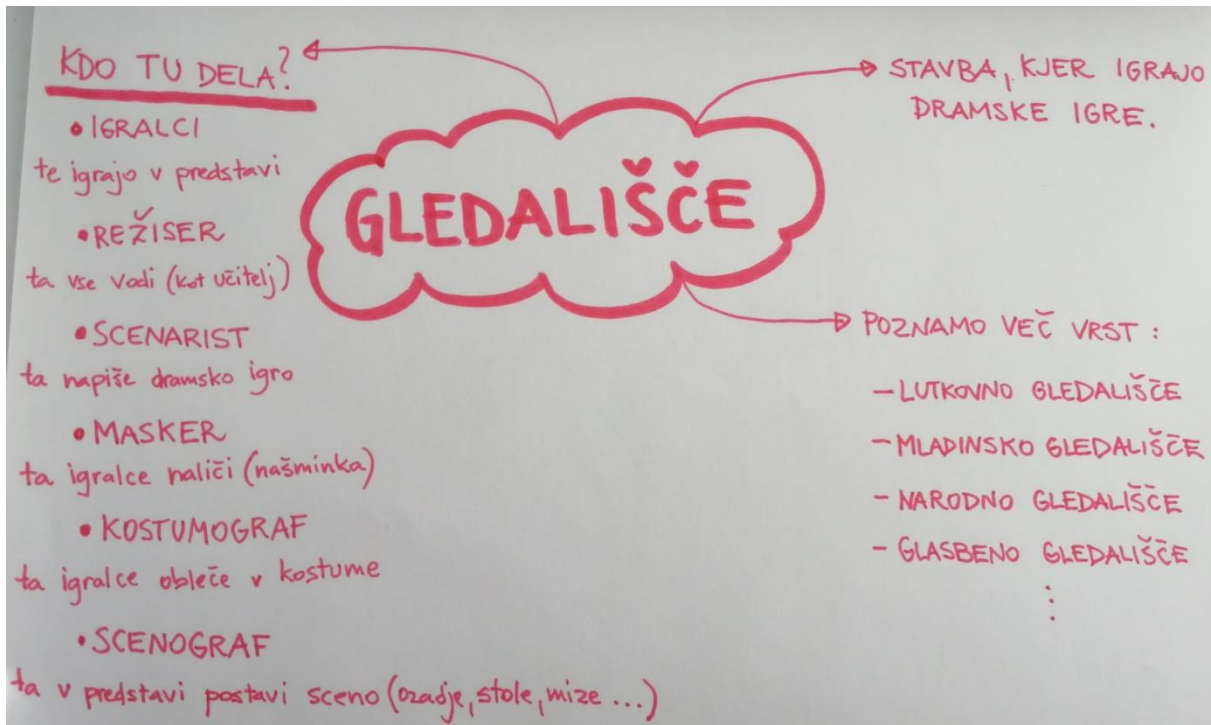 GLEDALIŠČE
KDO TU DELA?
• IGRALCI
te igrajo v predstavi
• REŽISER
ta vse vodi (kot učitelj)
• SCENARIST
ta napiše dramsko igro
• MASKER
ta igralce naliči (našminka)
• KOSTUMOGRAF
ta igralce obleče v kostume
• SCENOGRAF
ta v predstavi postavi sceno (ozadje, stole, mize ...)
STAVBA, KJER IGRAJO
DRAMSKE IGRE.
POZNAMO VEČ VRST :
- LUTKOVNO GLEDALIŠČE
- MLADINSKO GLEDALIŠČE
- NARODNO GLEDALIŠČE
- GLASBENO GLEDALIŠČE
⋮